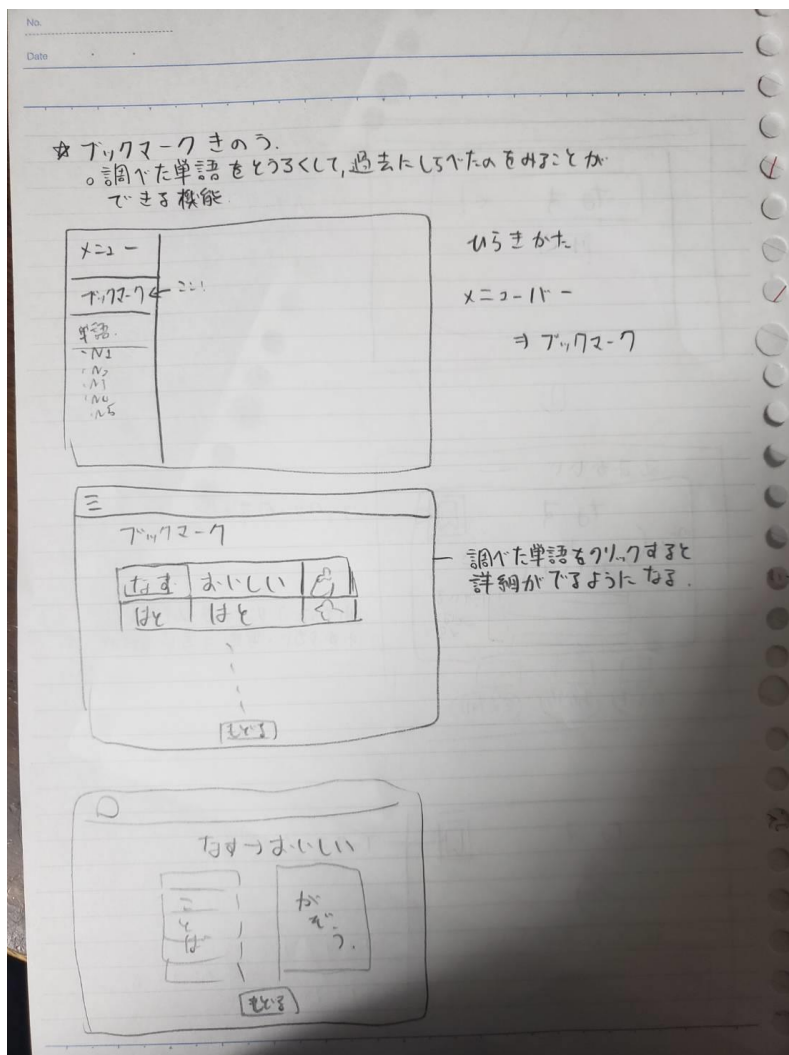 No.
Date
☆ ブックマークきのう.
。調べた単語をとうろくして,過去にしらべたのをみることが
できる機能
メニュー
ブックマーク← ここ!
単語.
・N1
・N2
・N3
・N4
・N5
ひらきかた
メニューバー
⇒ ブックマーク
三
ブックマーク
なす おいしい
はと はと
もどる
調べた単語をクリックすると
詳細がでるようになる.
なす→おいしい
ことば
がぞう.
もどる